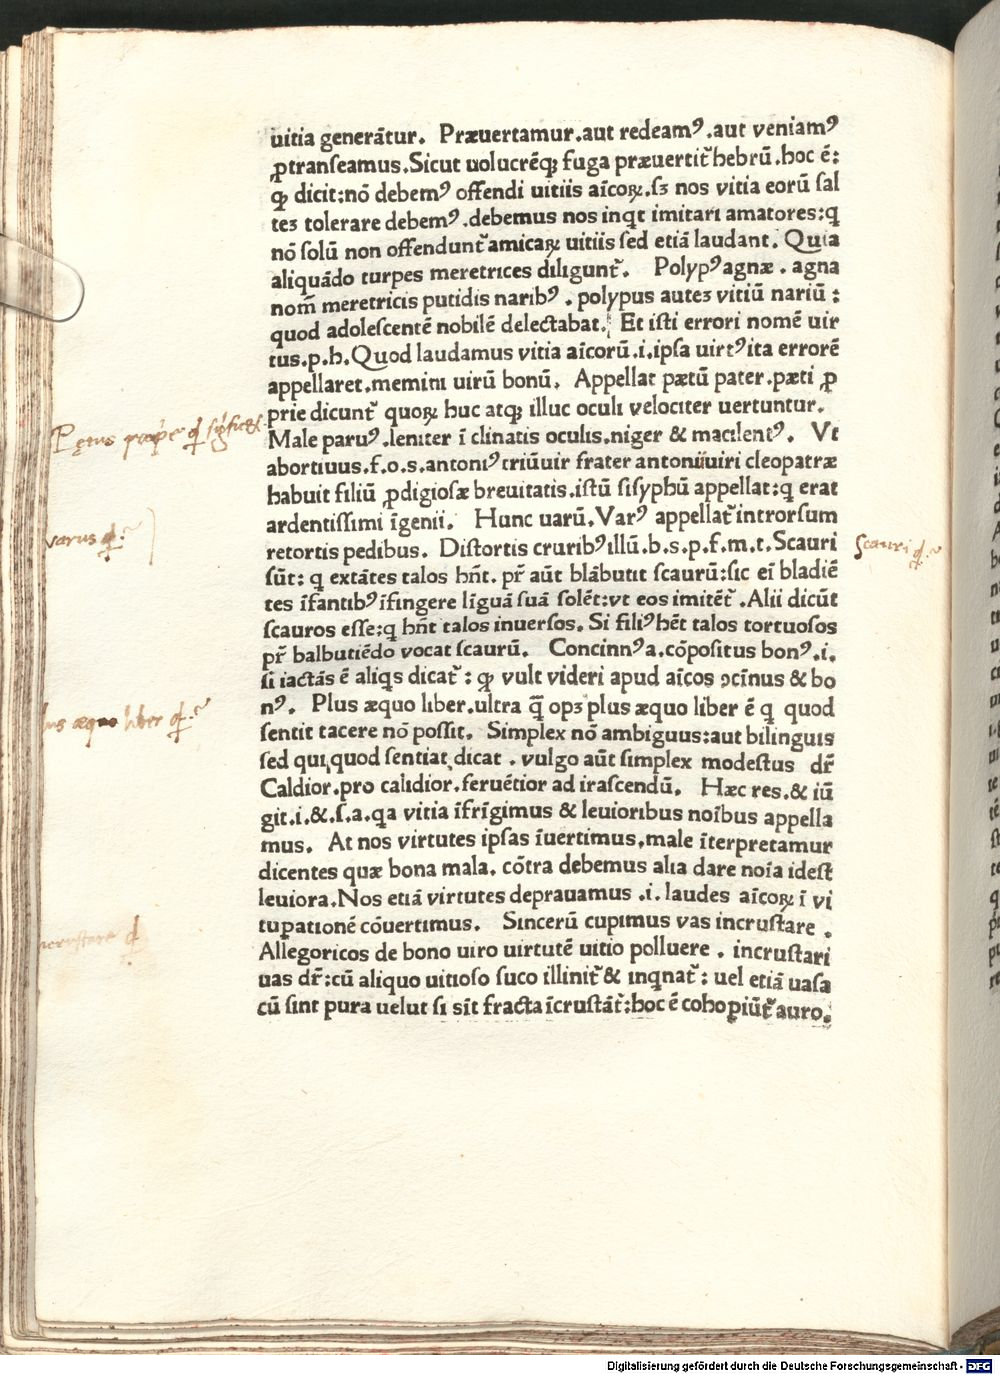 uitia generāt̄ur. Præuertamur.aut redeamꝰ.aut veniamꝰ
ꝓtranſeamus.Sicut uolucrēqꝫ fuga præuertit᷑ hebrū.hoc ē:
ꝙ dicit:nō debemꝰ offendi uitiis aīcoꝝ.ſꝫ nos vitia eorū ſal
teꝫ tolerare debemꝰ.debemus nos inqt imitari amatores:q
nō ſolū non offendunt᷑ amicaꝝ uitiis ſed etiā laudant. Quia
aliquādo turpes meretrices diligunt᷑. Polypꝰ agnæ . agna
nom̄ meretricis putidis naribꝰ . polypus auteꝫ vitiū nariū :
quod adoleſcentē nobilē delectabat. Et iſti errori nomē uir
tus.p.h.Quod laudamus vitia aīcorū.i.ipſa uirtꝰ ita errorē
appellaret.memini uirū bonū. Appellat pætū pater.pæti ꝓ
prie dicunt᷑ quoꝝ huc atqꝫ illuc oculi velociter uertuntur.
Male paruꝰ.leniter ī clinatis oculis.niger & macilentꝰ. Vt
abortiuus.f.o.s.antoniꝰ triūuir frater antonii uiri cleopatræ
habuit filiū ꝓdigioſæ breuitatis.iſtū ſiſyphū appellat:q erat
ardentiſſimi īgenii. Hunc uarū.Varꝰ appellat᷑ introrſum
retortis pedibus. Diſtortis cruribꝰ illū.b.s.p.f.m.t.Scauri
ſūt: q extātes talos hn̄t. pr̄ aūt blābutit ſcaurū:ſic eī bladiē
tes īfantibꝰ īfingere līguā ſuā ſolēt:vt eos imitēt᷑ .Alii dicūt
ſcauros eſſe:q hn̄t talos inuerſos.Si filiꝰ hēt talos tortuoſos
pr̄ balbutiēdo vocat ſcaurū. Concinnꝰ a.cōpoſitus bonꝰ.i.
ſi iactās ē aliqs dicat᷑ : ꝙ vult videri apud aīcos ↄcīnus & bo
nꝰ. Plus æquo liber.ultra q̄ opꝫ plus æquo liber ē q quod
ſentit tacere nō poſſit. Simplex nō ambiguus:aut bilinguis
ſed qui quod ſentiat dicat . vulgo aūt ſimplex modeſtus dr̄
Caldior.pro calidior.feruētior ad iraſcendū. Hæc res.& iū
git.i.&.ſ.a.qa vitia īfrīgimus & leuioribus noībus appella
mus. At nos virtutes ipſas īuertimus.male īterpretamur
dicentes quæ bona mala. cōtra debemus alia dare noīa ideſt
leuiora.Nos etiā virtutes deprauamus .i. laudes aīcoꝝ ī vi
tupationē cōuertimus. Sincerū cupimus vas incruſtare .
Allegoricos de bono uiro uirtutē uitio polluere . incruſtari
uas dr̄:cū aliquo uitioſo ſuco illinit᷑ & inqnat᷑ : uel etiā uaſa
cū ſint pura uelut ſi sīt fracta īcruſtāt᷑:hoc ē cohopiūt᷑ auro.
varus
Scauri
æquo liber
Digitalisierung gefördert durch die Deutsche Forschungsgemeinschaft - DFG